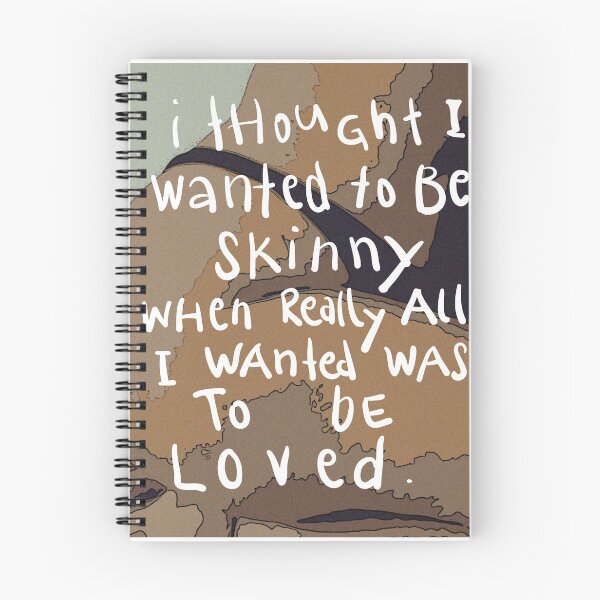 i tHougHt I
wanted to Be
skinny
wHen Really All
I WAnted WAS
To bE
Loved.